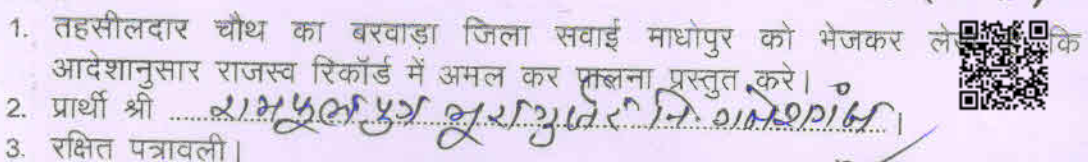 1. तहसीलदार चौथ का बरवाड़ा जिला सवाई माधोपुर को भेजकर कि
आदेशानुसार राजस्व रिकॉर्ड में अमल कर पालना प्रस्तुत करे।
2. प्रार्थी श्री रामफूल पुत्र भूरा गुर्जर नि. गणेशगंज ।
3. रक्षित पत्रावली।